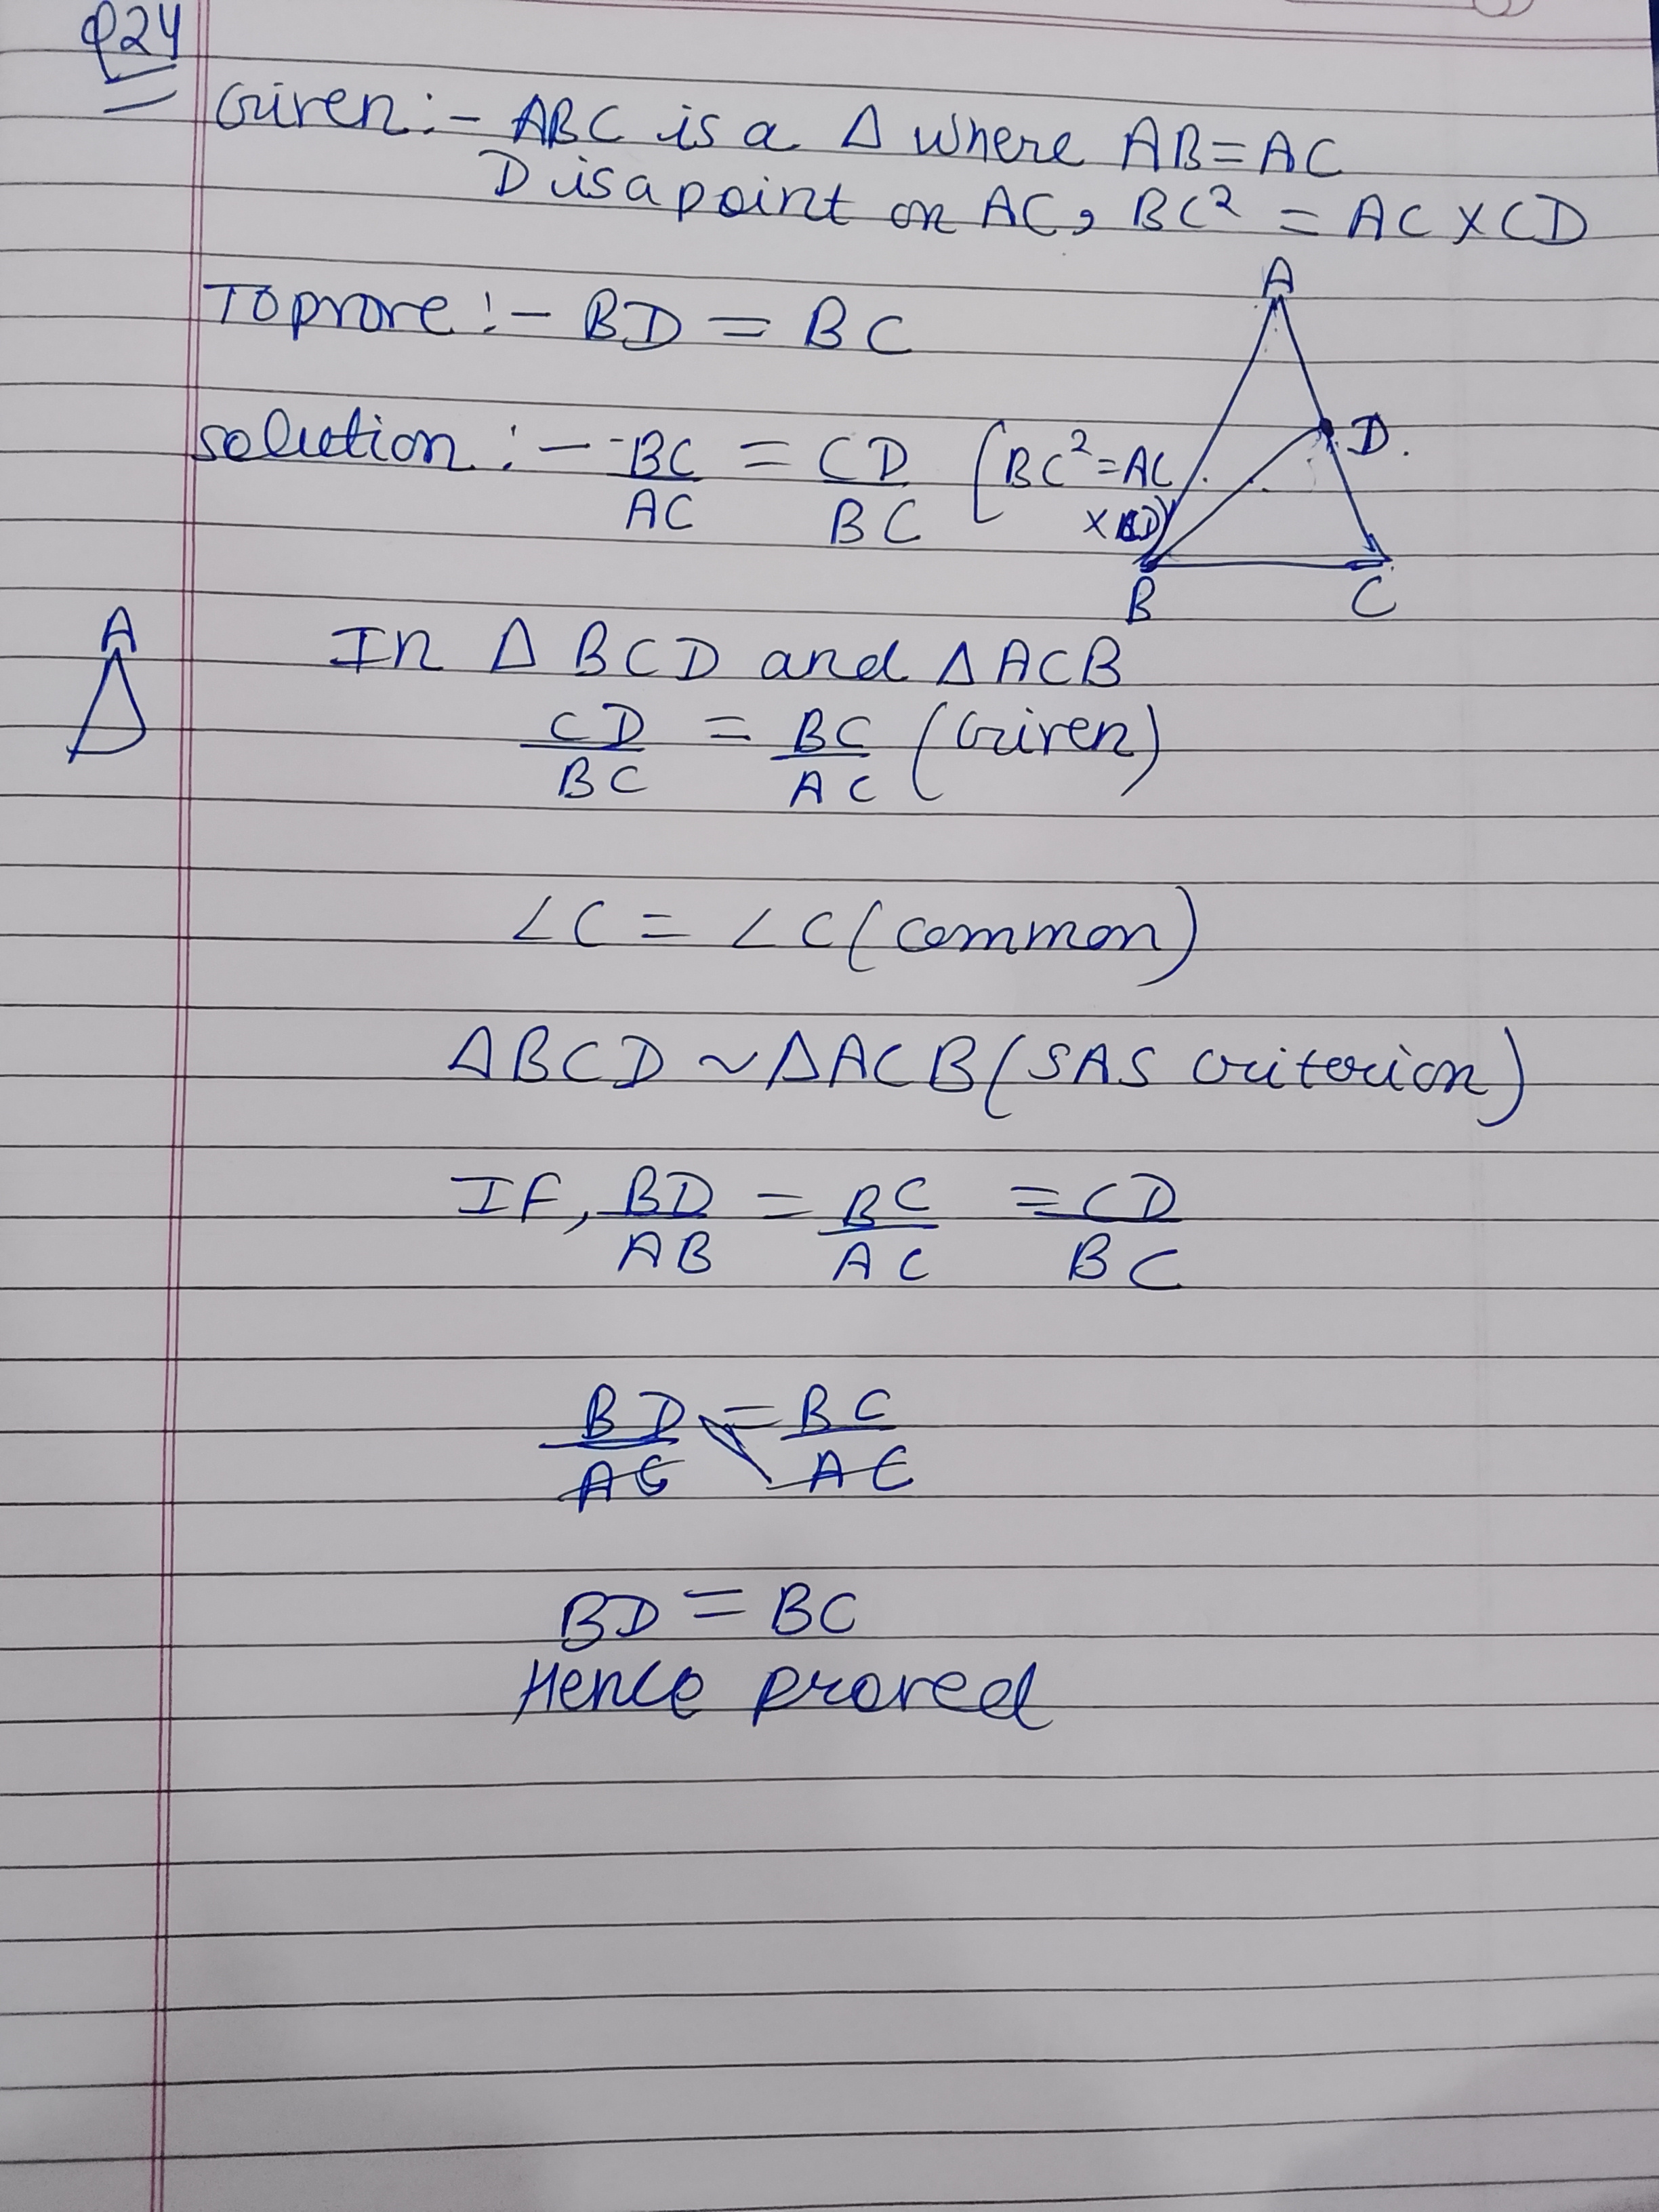 Q24
Given:- ABC is a Δ where AB=AC
D is a point on AC, BC² = AC X CD
A
To prove:- BD = BC
D.
solution:- BC/AC = CD/BC [BC²=AC
X CD)
B C
A
In Δ BCD and ΔACB
CD/BC = BC/AC (Given)
∠C = ∠C (common)
ΔBCD ~ ΔACB (SAS criterion)
IF, BD/AB = BC/AC = CD/BC
BD/AC = BC/AC
BD = BC
Hence proved